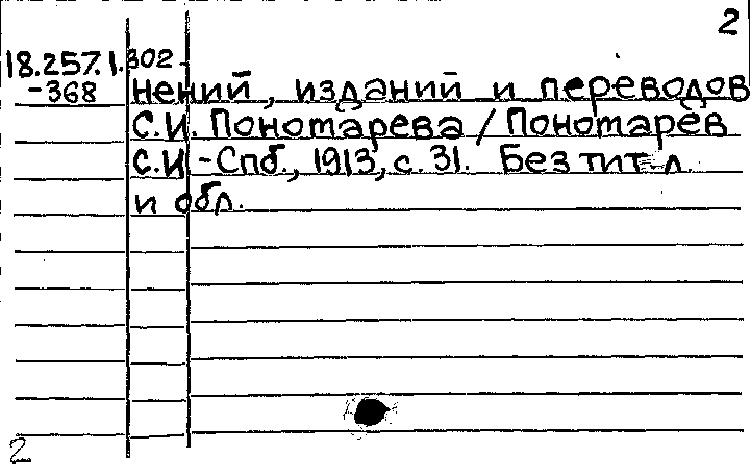 2
18.257.1.302-
-368
нений, изданий и переводов
С.И. Пономарева / Пономарев
С.И. - Спб., 1913, с. 31. Без тит. л.
и обл.
2